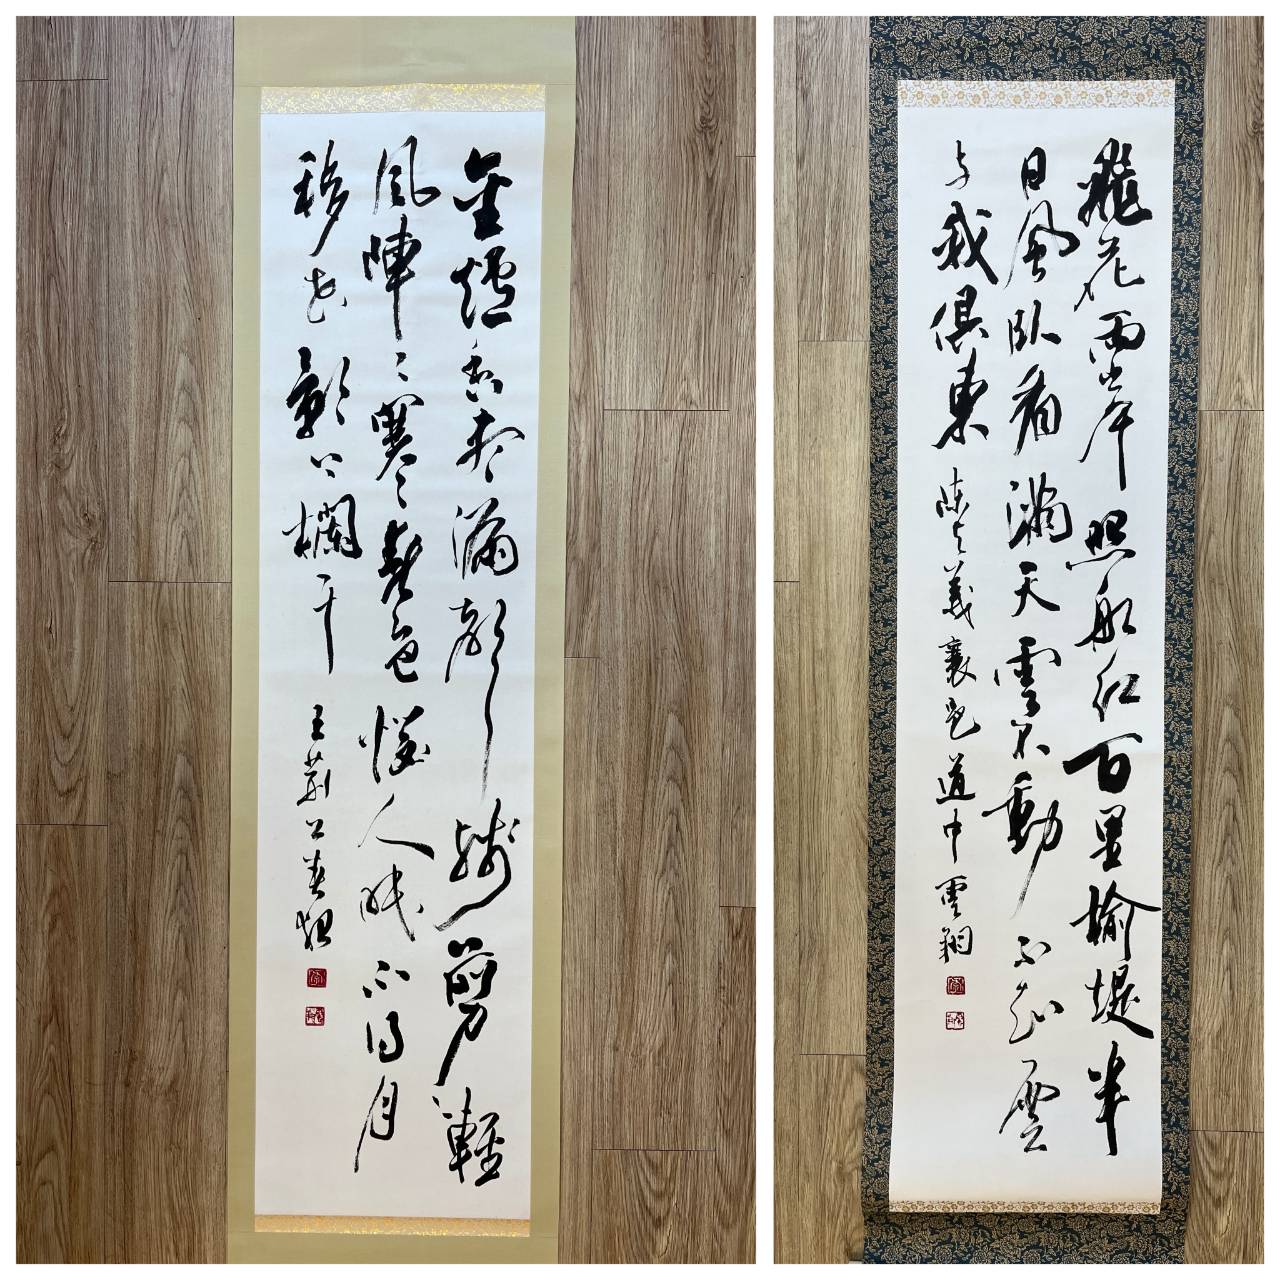 金爐香盡漏聲殘剪輕
風陣〻寒〻春色惱人眠不得月
移花影上欄干
王荊公春夜
飛花兩岸照船紅百里榆堤半
日風臥看滿天雲不動不知雲
与我俱東
陳与義襄邑道中 雲翔